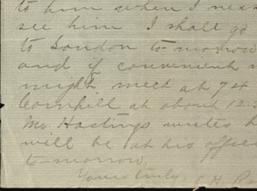 to him when I
see him I shall go
to London to-morrow
and if convenient
might meet at 74
Cornhill at about 12.
Mr. Hastings writes he
will be at his office
to-morrow.
Yours truly,